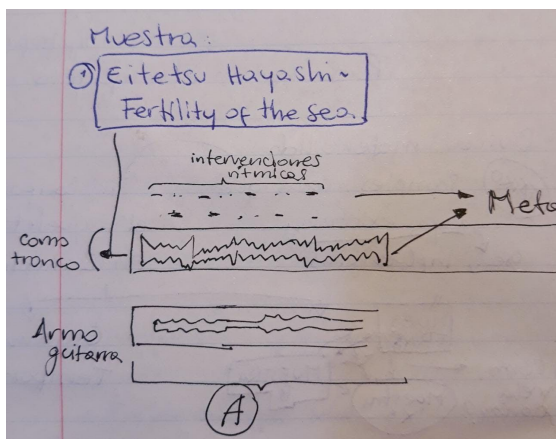 Muestra:
① Eitetsu Hayashi -
Fertility of the sea.
intervenciones
rítmicas
Meta
como
tronco
Armo
guitarra
A